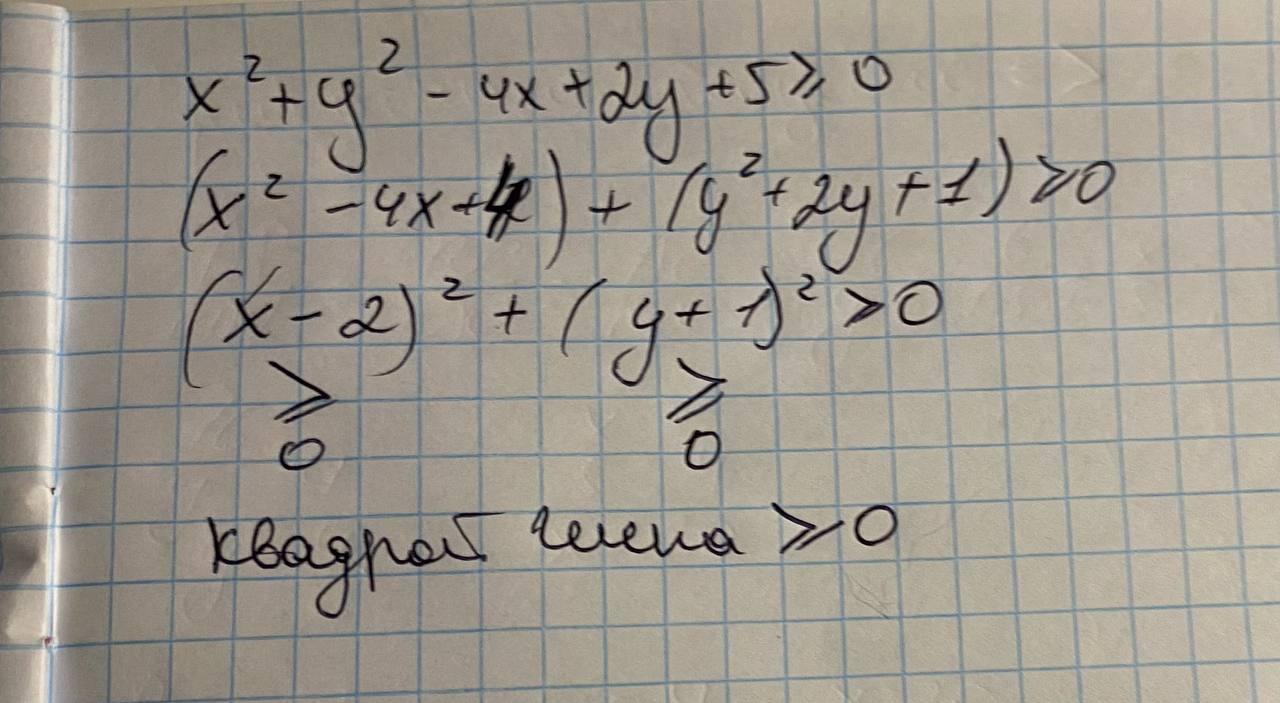 x² + y² - 4x + 2y + 5 ⩾ 0
(x² - 4x + 4) + (y² + 2y + 1) ⩾ 0
(x - 2)² + (y + 1)² ⩾ 0
⩾ ⩾
0 0
квадрат числа ⩾ 0